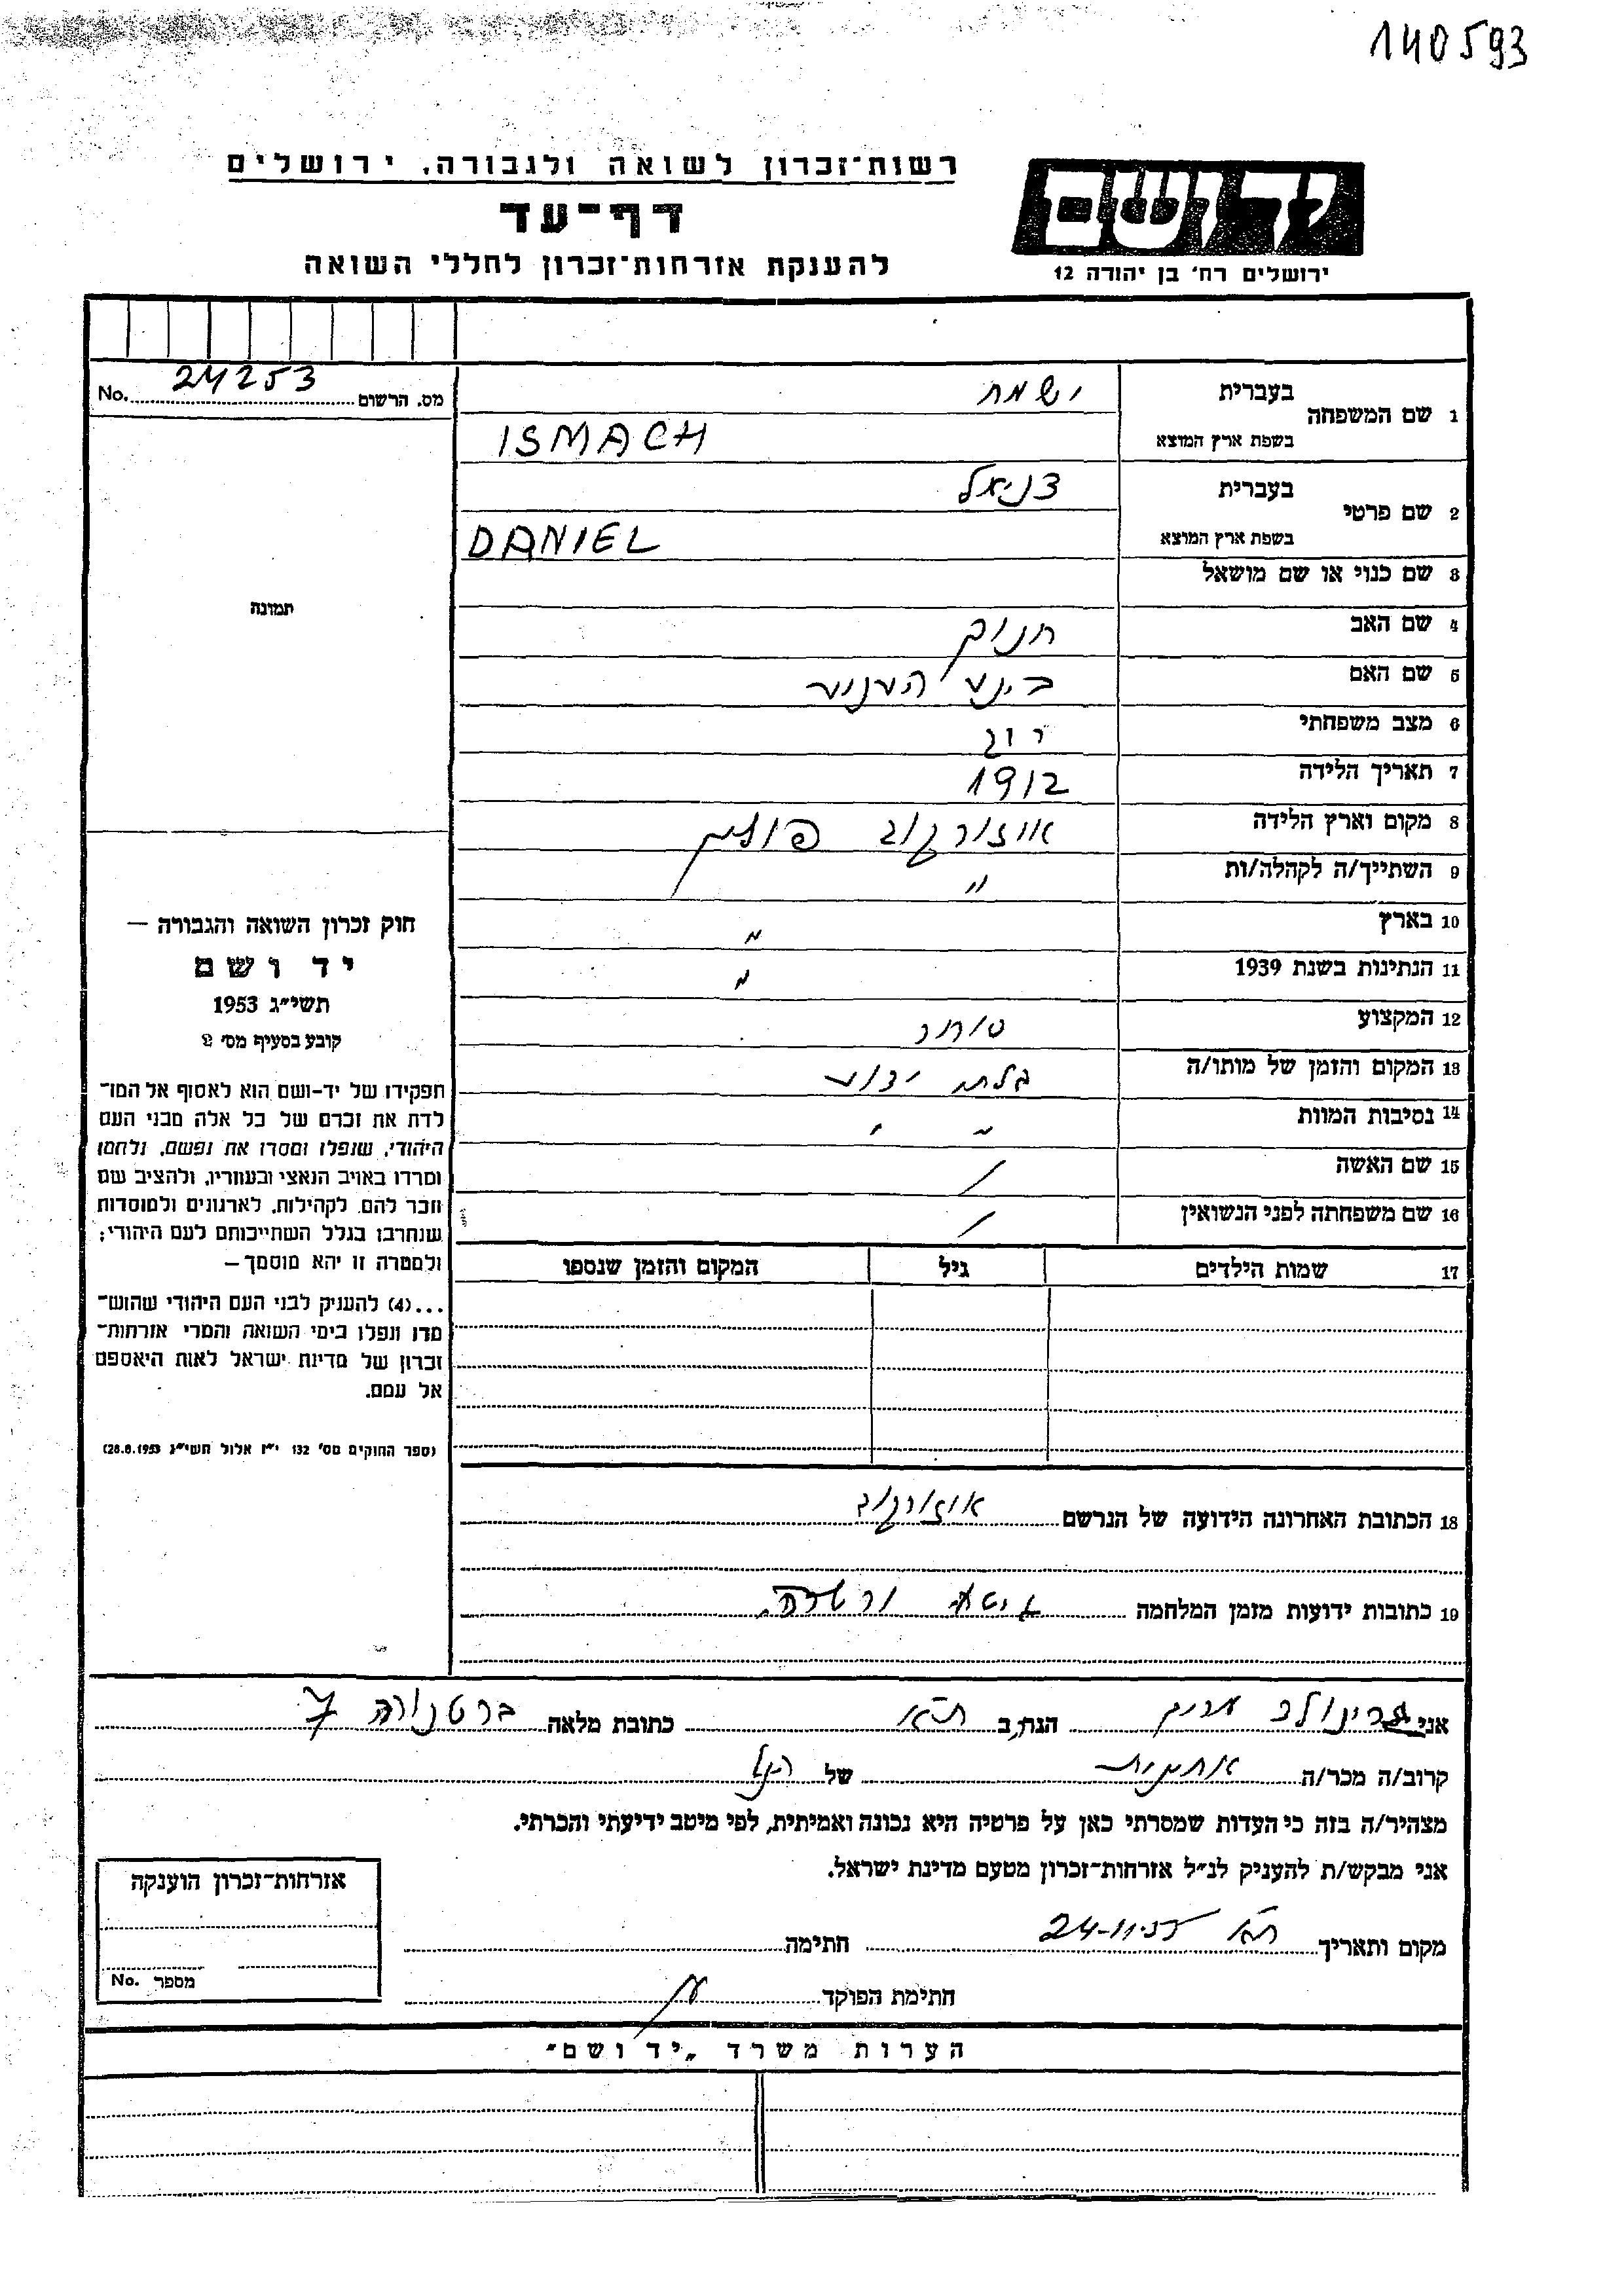 140593
רשות־זכרון לשואה ולגבורה, ירושלים
יד ושם
דף־עד
להענקת אזרחות־זכרון לחללי השואה
ירושלים רח' בן יהודה 12
מס. הרשום 24253 No.
1 שם המשפחה בעברית ישמח
בשפת ארץ המוצא ISMACH
2 שם פרטי בעברית דניאל
בשפת ארץ המוצא DANIEL
3 שם כנוי או שם מושאל
תמונה
4 שם האב חנוך
5 שם האם
6 מצב משפחתי רווק
7 תאריך הלידה 1912
8 מקום וארץ הלידה אוזורקוב פולין
9 השתייך/ה לקהלה/ות "
10 בארץ "
11 הנתינות בשנת 1939 "
12 המקצוע סוחר
13 המקום והזמן של מותו/ה בלתי ידוע
14 נסיבות המוות " "
15 שם האשה /
16 שם משפחתה לפני הנשואין /
17 שמות הילדים גיל המקום והזמן שנספו
חוק זכרון השואה והגבורה —
יד ושם
תשי"ג 1953
קובע בסעיף מס' 2
תפקידו של יד-ושם הוא לאסוף אל המו־
לדת את זכרם של כל אלה מבני העם
היהודי, שנפלו ומסרו את נפשם, נלחמו
ומרדו באויב הנאצי ובעוזריו, ולהציב שם
וזכר להם, לקהילות, לארגונים ולמוסדות
שנחרבו בגלל השתייכותם לעם היהודי;
ולמטרה זו יהא מוסמך —
...(4) להעניק לבני העם היהודי שהוש־
מדו ונפלו בימי השואה והמרי אזרחות־
זכרון של מדינת ישראל לאות היאספם
אל עמם.
(ספר החוקים מס' 132 י"ז אלול תשי"ג 28.8.1953)
18 הכתובת האחרונה הידועה של הנרשם אוזורקוב
19 כתובות ידועות מזמן המלחמה גיטו ורשה
אני הגר ב ת"א כתובת מלאה ברטנורה 7
קרוב/ה מכר/ה של הנ"ל
מצהיר/ה בזה כי העדות שמסרתי כאן על פרטיה היא נכונה ואמיתית, לפי מיטב ידיעתי והכרתי.
אני מבקש/ת להעניק לנ"ל אזרחות־זכרון מטעם מדינת ישראל.
מקום ותאריך ת"א 24-11-55 חתימה
חתימת הפוקד
אזרחות־זכרון הוענקה
מספר No.
הערות משרד "יד ושם"